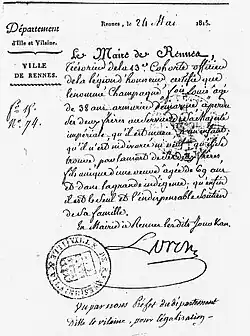 Département
d'Ille et Vilaine.
VILLE
DE RENNES.
Rennes, le 24 Mai 1815.
Le Maire de Rennes
trésorier de la 13e Cohorte officier
de la légion d'honneur certifie que
le nommé Champagne Jou Louis âgé
de 38 ans, armurier
ses deux frères au service de Sa Majesté
impériale, qu'il est
qu'il n'est
trouvé par la mort de frères
fils unique d'une veuve âgée de 69 ans
et dans la grande indigence, qu'enfin
il est le seul et l'indispensable soutien
de sa famille.
En Mairie à Rennes les dits jour & an.
fo 15.
No 74.
Lorin
Vu par nous Préfet du département
d'Ille & Vilaine, pour légalisation